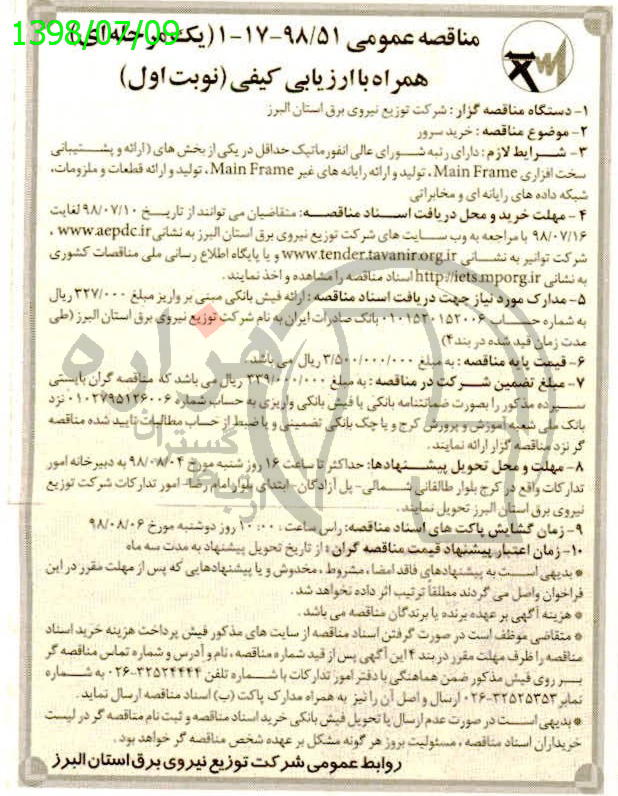 1398/07/09
مناقصه عمومی ۹۸/۵۱-۱۷-۱ (یک مرحله ای)
همراه با ارزیابی کیفی (نوبت اول)
۱- دستگاه مناقصه گزار : شرکت توزیع نیروی برق استان البرز
۲- موضوع مناقصه : خرید سرور
۳- شرایط لازم : دارای رتبه شورای عالی انفورماتیک حداقل در یکی از بخش های (ارائه و پشتیبانی
سخت افزاری Main Frame ، تولید و ارائه رایانه های غیر Main Frame ، تولید و ارائه قطعات و ملزومات،
شبکه داده های رایانه ای و مخابراتی
۴- مهلت خرید و محل دریافت اسناد مناقصه: متقاضیان می توانند از تاریخ ۹۸/۰۷/۱۰ لغایت
۹۸/۰۷/۱۶ با مراجعه به وب سایت های شرکت توزیع نیروی برق استان البرز به نشانی www.aepdc.ir ،
شرکت توانیر به نشانی www.tender.tavanir.org.ir و یا پایگاه اطلاع رسانی ملی مناقصات کشوری
به نشانی http://iets.mporg.ir اسناد مناقصه را مشاهده و اخذ نمایند .
۵- مدارک مورد نیاز جهت دریافت اسناد مناقصه : ارائه فیش بانکی مبنی بر واریز مبلغ ۳۲۷/۰۰۰ ریال
به شماره حساب ۰۱۰۱۵۲۰۱۵۲۰۰۶ بانک صادرات ایران به نام شرکت توزیع نیروی برق استان البرز (طی
مدت زمان قید شده در بند ۴)
۶- قیمت پایه مناقصه : به مبلغ ۳/۵۰۰/۰۰۰/۰۰۰ ریال می باشد.
۷- مبلغ تضمین شرکت در مناقصه : به مبلغ ۳۳۹/۰۰۰/۰۰۰ ریال می باشد که مناقصه گران بایستی
سپرده مذکور را بصورت ضمانتنامه بانکی یا فیش بانکی واریزی به حساب شماره ۰۱۰۲۷۹۵۱۲۶۰۰۶ نزد
بانک ملی شعبه آموزش و پرورش کرج و یا چک بانکی تضمینی و یا ضبط از حساب مطالبات تایید شده مناقصه
گر نزد مناقصه گزار ارائه نمایند .
۸- مهلت و محل تحویل پیشنهادها: حداکثر تا ساعت ۱۶ روز شنبه مورخ ۹۸/۰۸/۰۴ به دبیرخانه امور
تدارکات واقع در کرج بلوار طالقانی شمالی- پل آزادگان- ابتدای بلوار امام رضا- امور تدارکات شرکت توزیع
نیروی برق استان البرز تحویل نمایند .
۹- زمان گشایش پاکت های اسناد مناقصه: راس ساعت : ۱۰:۰۰ روز دوشنبه مورخ ۹۸/۰۸/۰۶
۱۰- زمان اعتبار پیشنهاد قیمت مناقصه گران : از تاریخ تحویل پیشنهاد به مدت سه ماه
* بدیهی است به پیشنهادهای فاقد امضاء مشروط ، مخدوش و یا پیشنهادهایی که پس از مهلت مقرر در این
فراخوان واصل می گردند مطلقاً ترتیب اثر داده نخواهد شد .
* هزینه آگهی بر عهده برنده یا برندگان مناقصه می باشد .
* متقاضی موظف است در صورت گرفتن اسناد مناقصه از سایت های مذکور فیش پرداخت هزینه خرید اسناد
مناقصه را ظرف مهلت مقرر در بند ۴ این آگهی پس از قید شماره مناقصه ، نام و آدرس و شماره تماس مناقصه گر
بر روی فیش مذکور ضمن هماهنگی با دفتر امور تدارکات با شماره تلفن ۳۲۵۲۴۴۴۴-۰۲۶ به شماره
نمابر ۳۲۵۲۵۳۵۳-۰۲۶ ارسال و اصل آن را نیز به همراه مدارک پاکت (ب) اسناد مناقصه ارسال نماید .
* بدیهی است در صورت عدم ارسال یا تحویل فیش بانکی خرید اسناد مناقصه و ثبت نام مناقصه گر در لیست
خریداران اسناد مناقصه ، مسئولیت بروز هر گونه مشکل بر عهده شخص مناقصه گر خواهد بود .
روابط عمومی شرکت توزیع نیروی برق استان البرز